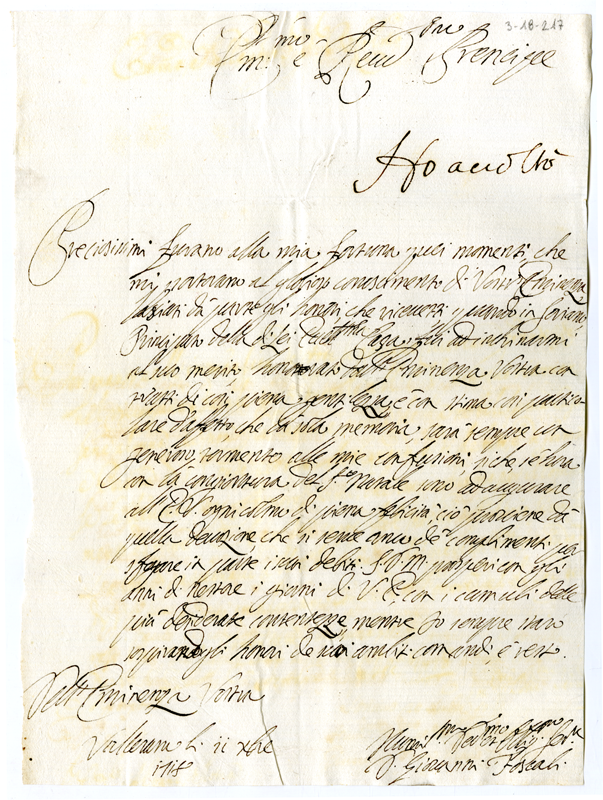 3-18-217
Em.mo e Rev.mo Prencipe
Preciosissimi furano alla mia fortuna quei momenti, che
mi portorano al glorioso conoscimento di Vostra Eminenza
lasciati da parte gli honori, che ricevetti quando in Soriano
Principato della di Lei Ecc.ma Casa ad inchinarmi
al suo merito, honorato dall'Eminenza Vostra con
di così piena gentilezza, e con stima così partico
lare d'affetto, che la sua memoria, sarà sempre un
generoso tormento alle mie confusioni, che, se hora
con la congiontura del S.to Natale vengo ad augurare
all'E.V. di piena felicità, ciò proviene da
quella devozione, che si serve anco de complimenti per
in parte i suoi debiti. S.D.M. prosperi con gli
anni di Nestore i giorni di V.E., con i cumuli delle
più desiderate contentezze, mentre Io sempre staro
sospirandogli honori de suoi ambiti comandi, e resto.
Dell'Eminenza Vostra
Vallerano li 11 xbre
1718
D. Giovanni Foscoli